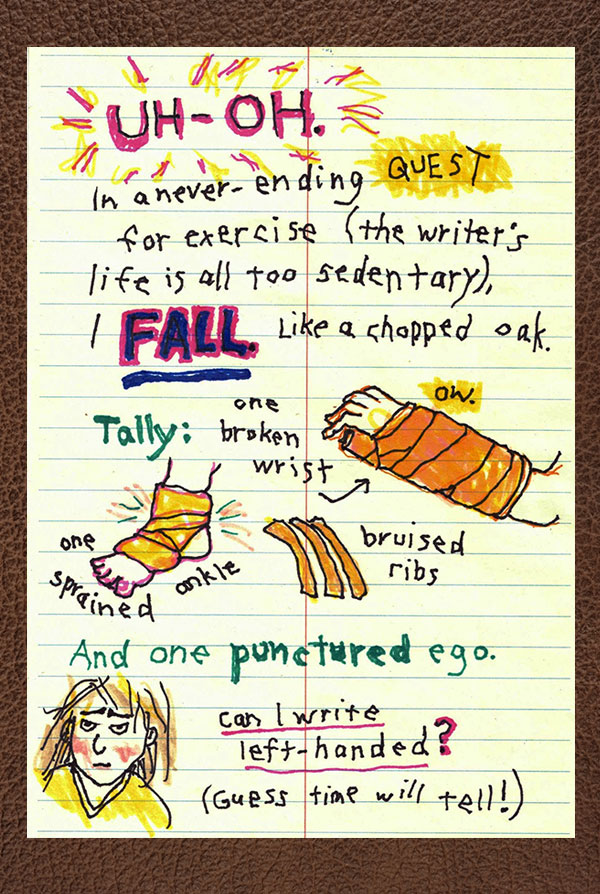 UH-OH.
In a never-ending QUEST
for exercise (the writer's
life is all too sedentary),
I FALL. Like a chopped oak.
Tally:
one
broken
wrist
OW.
one
sprained
ankle
bruised
ribs
And one punctured ego.
can I write
left-handed?
(Guess time will tell!)